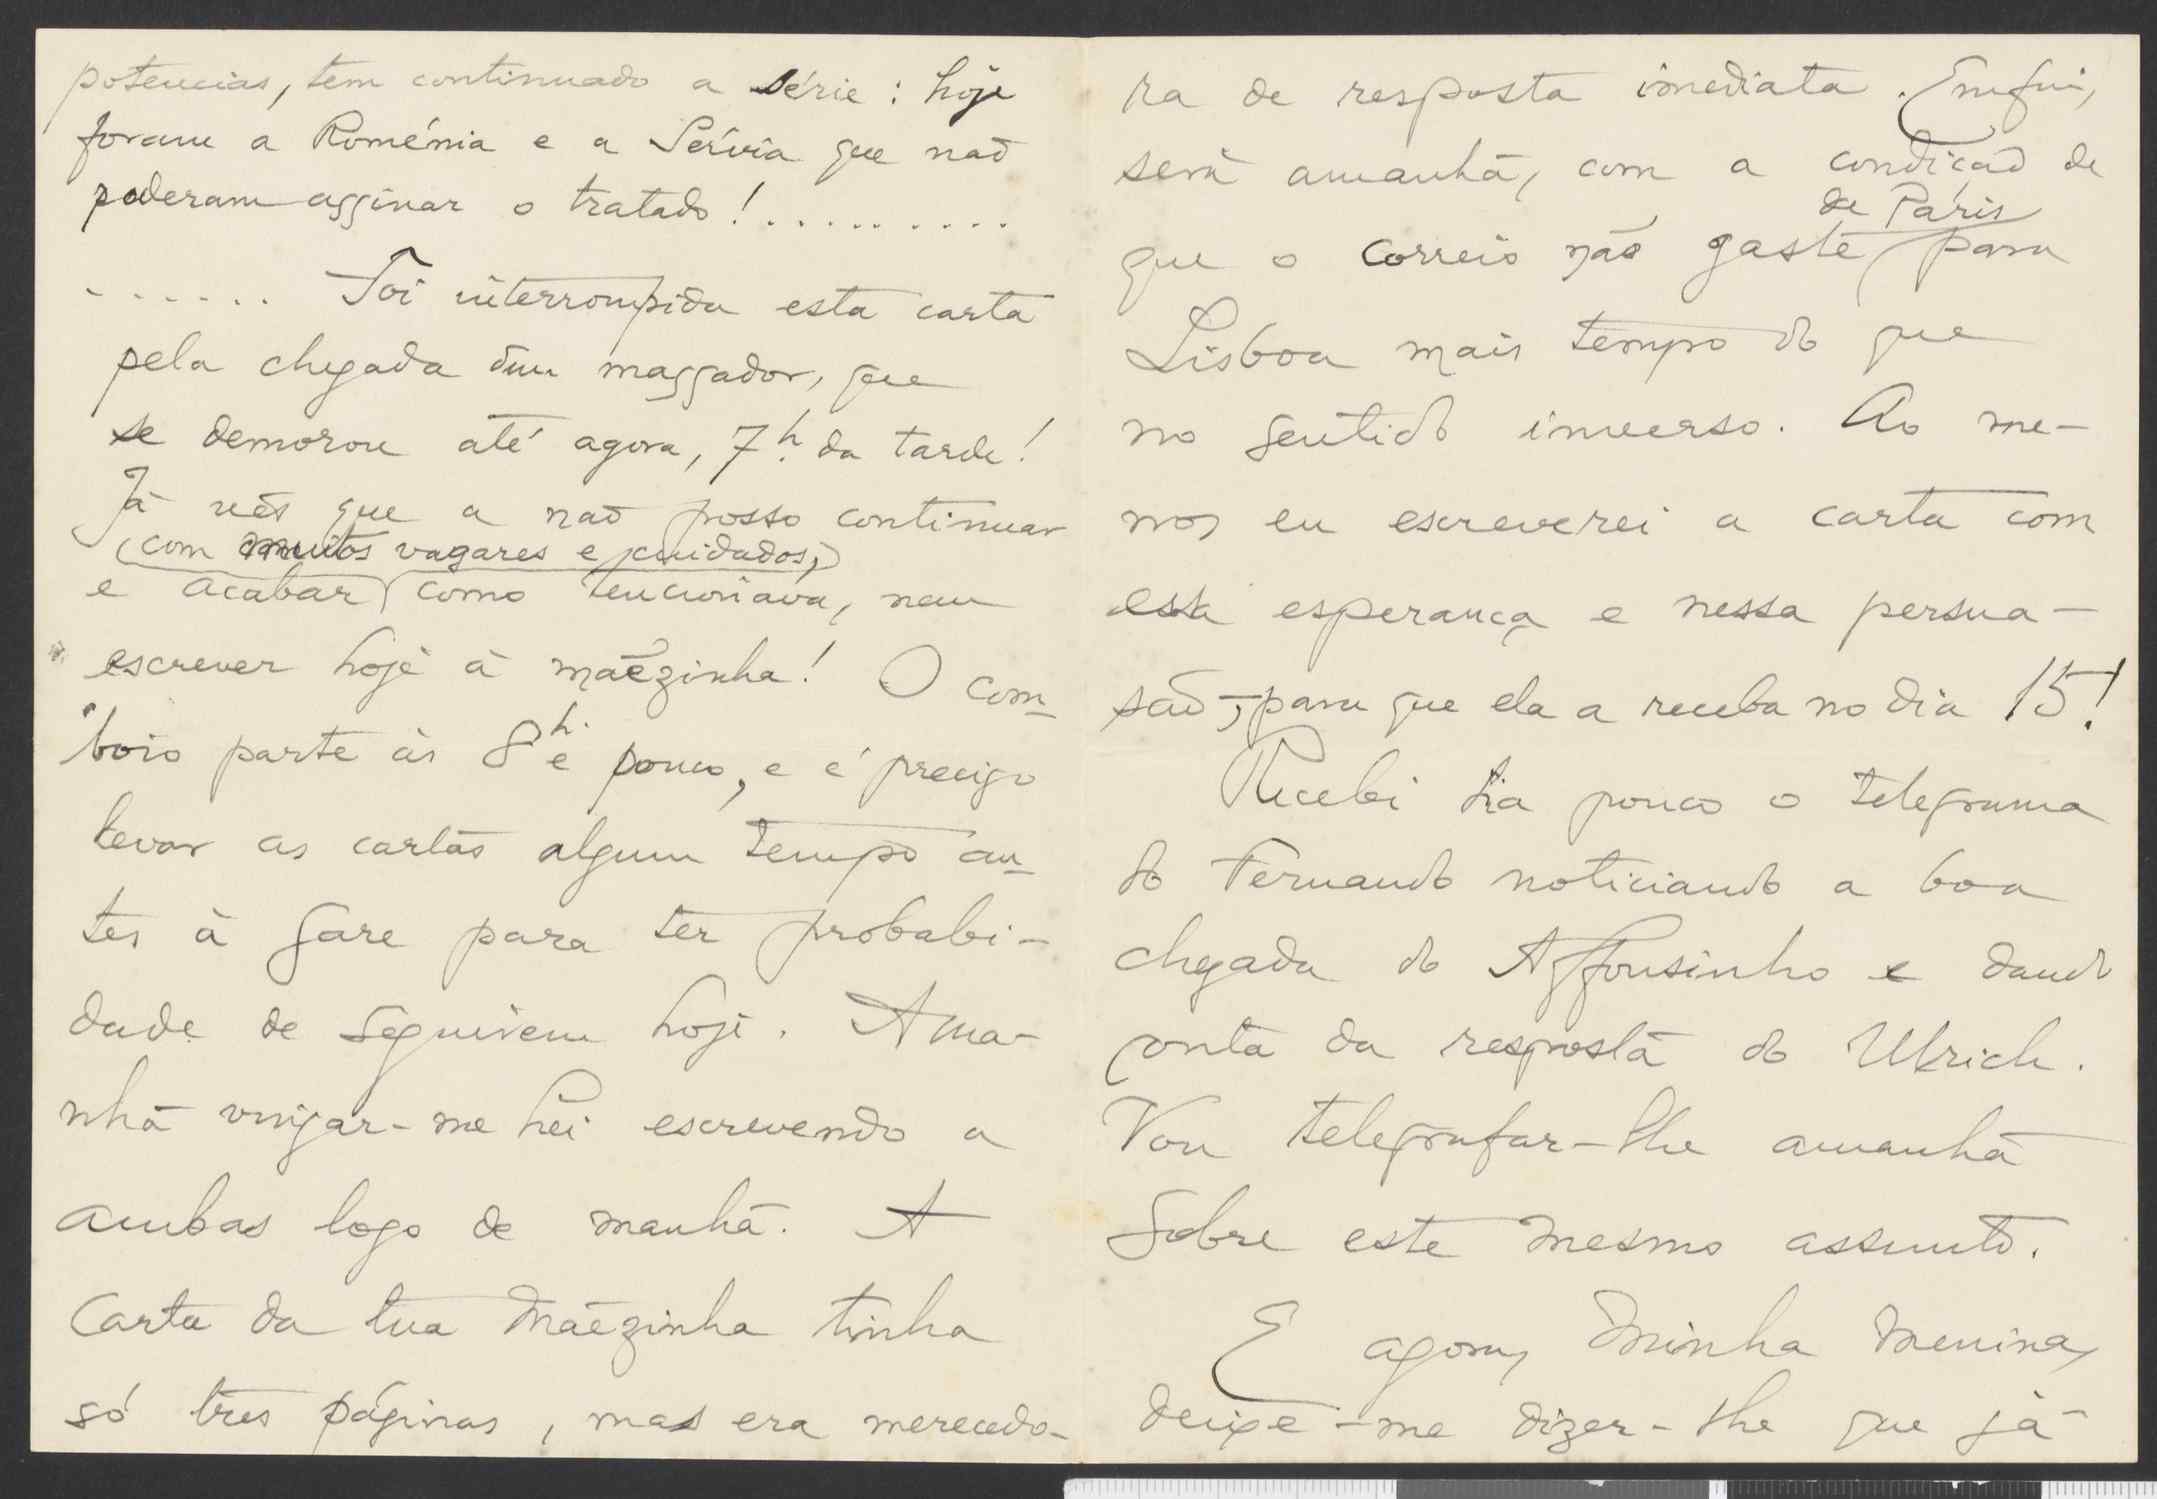 potencias, tem continuado a série: hoje
foram a Roménia e a Sérvia que não
poderam assinar o tratado!..........
...... Foi interrompida esta carta
pela chegada dum massador, que
se demorou até agora, 7h. da tarde!
Já vês que a não posso continuar
(com muitos vagares e cuidados,)
e acabar como tencionava, nem
escrever hoje à mãezinha! O com-
boio parte às 8h e pouco, e é preciso
levar as cartas algum tempo an-
tes à gare para ter probabi-
dade de seguirem hoje. Ama-
nhã vingar-me hei escrevendo a
ambas logo de manhã. A
carta da tua Mãezinha tinha
só três páginas, mas era merecedo-
ra de resposta imediata. Enfim,
será amanhã, com a condição de
de Paris
que o correio não gaste para
Lisboa mais tempo do que
no sentido inverso. Ao me-
nos eu escreverei a carta com
essa esperança e nessa persua-
são, para que ela a receba no dia 15!
Recebi ha pouco o telegrama
do Fernando noticiando a boa
chegada do Affonsinho e dando
conta da resposta do Ulrich.
Vou telegrafar-lhe amanhã
sobre este mesmo assunto.
E agora, Minha Menina,
deixe-me dizer-lhe que já